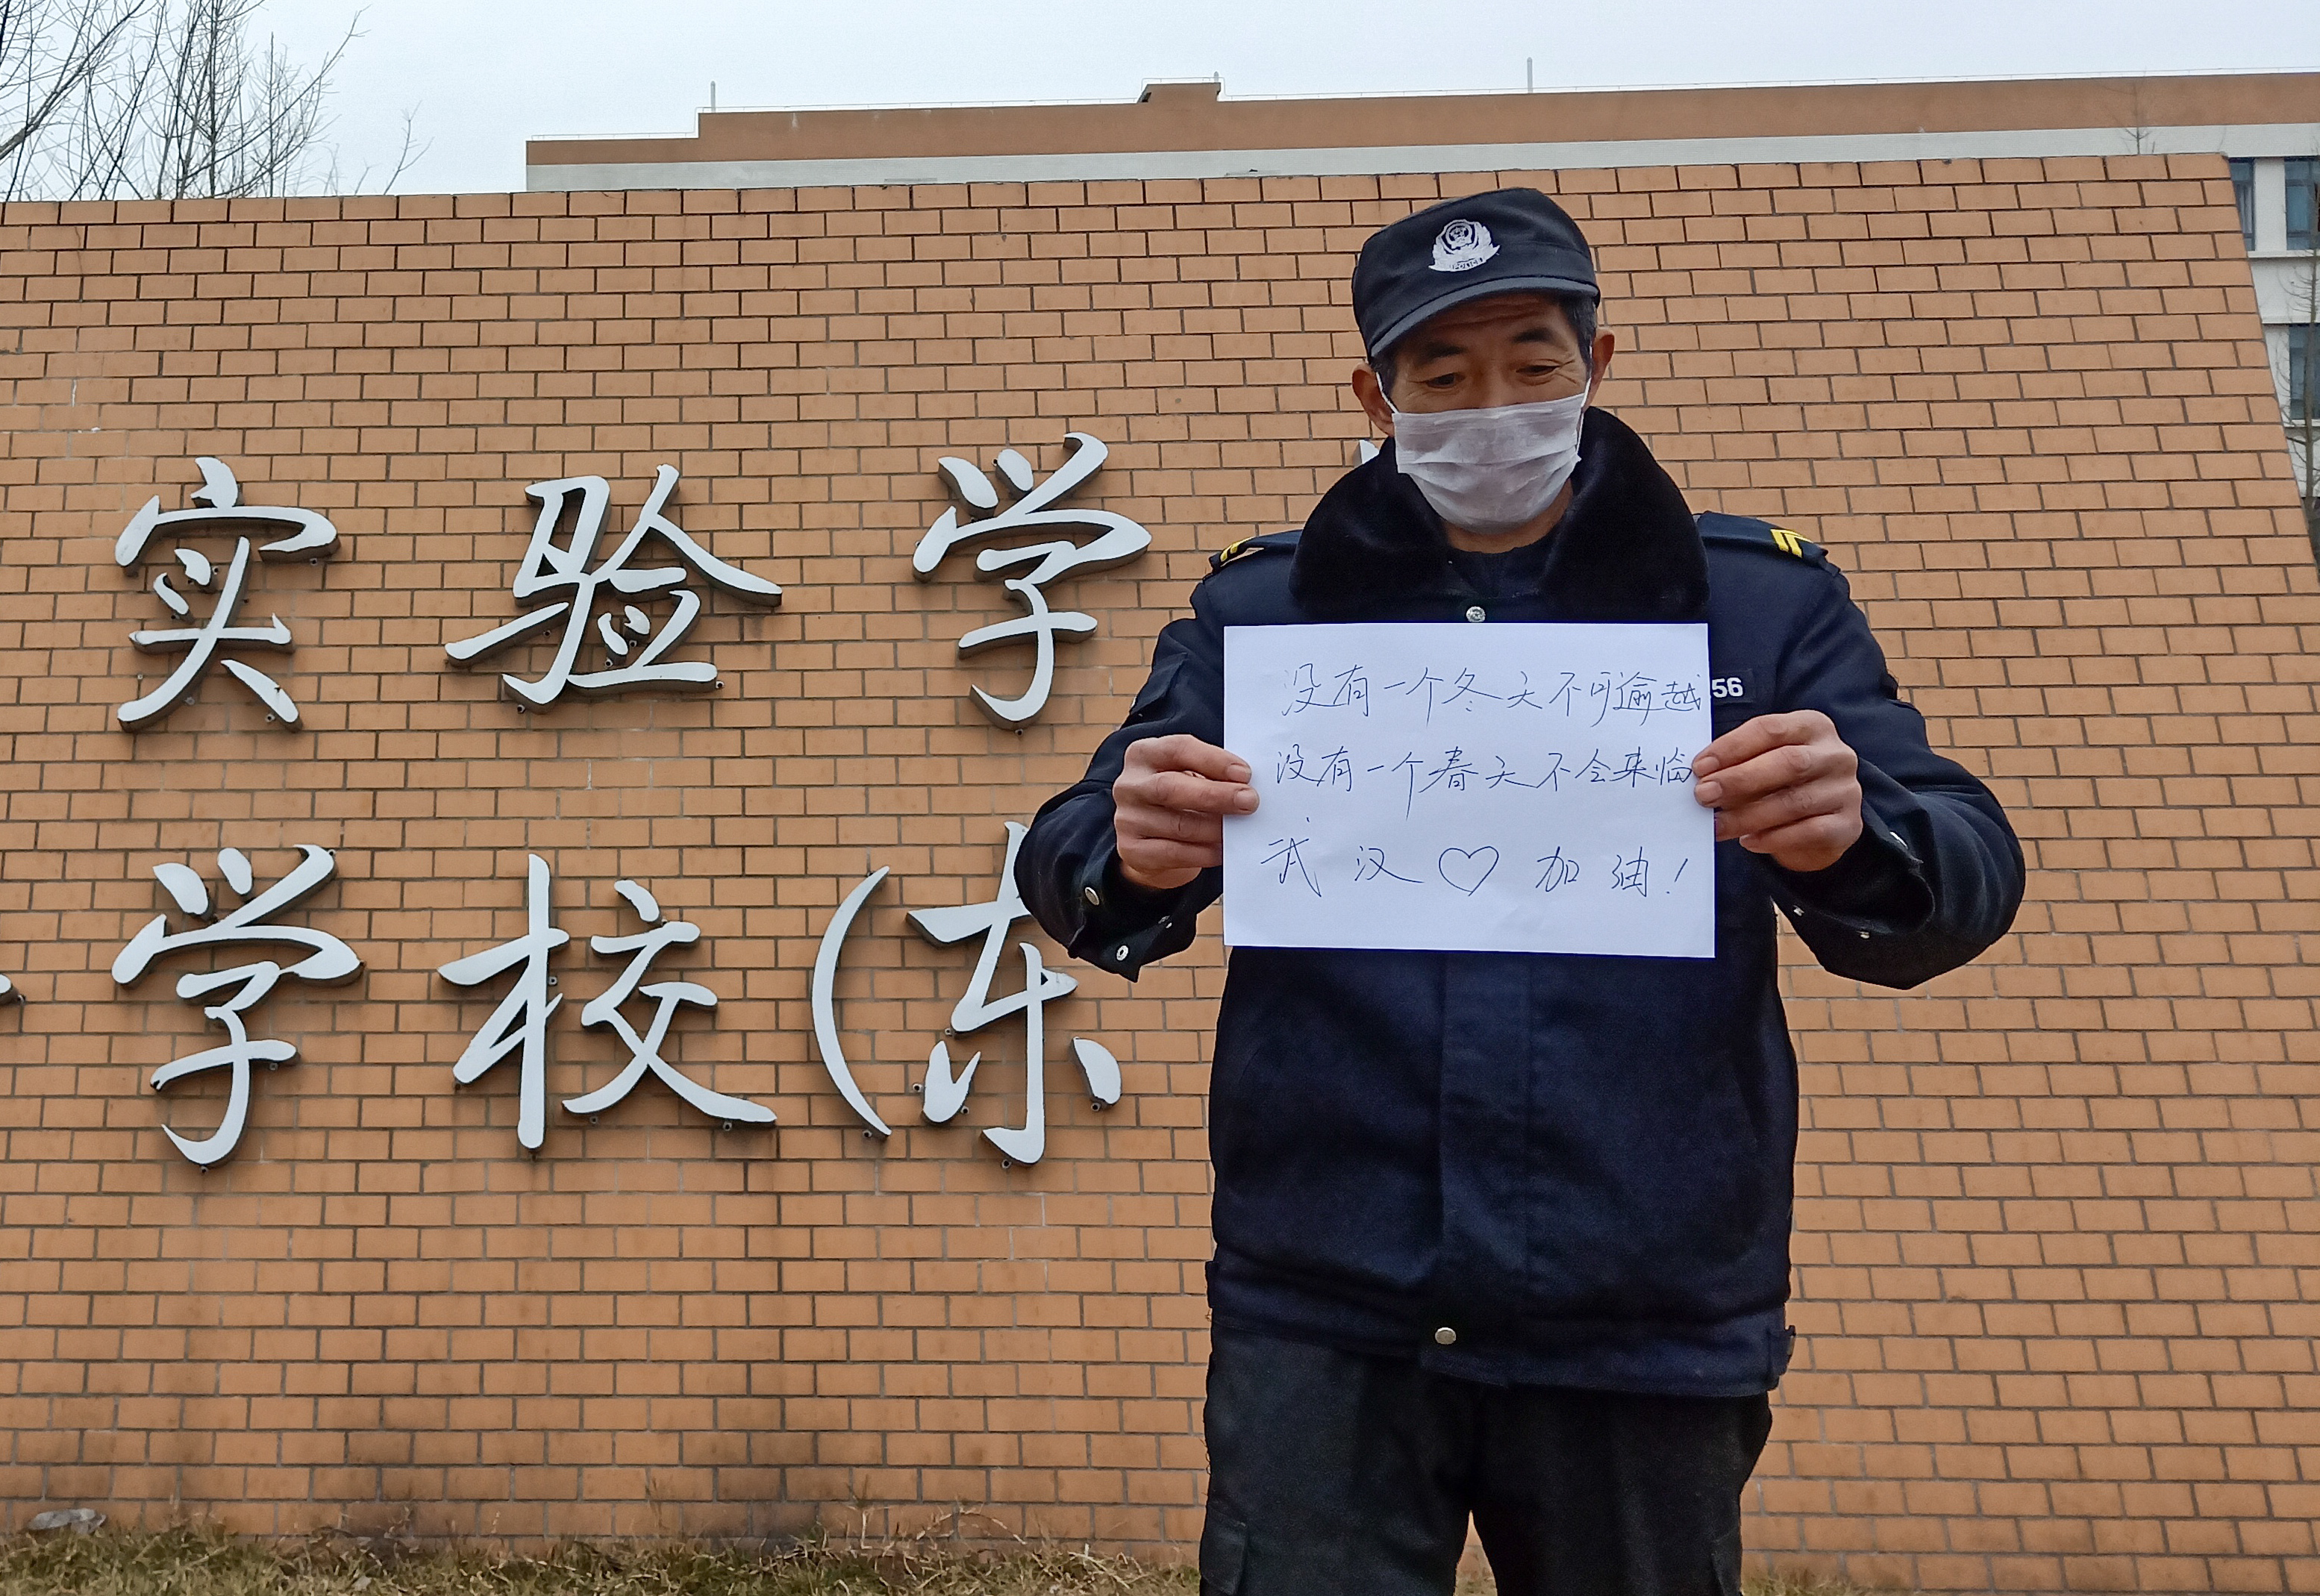 实验学
学校(东
POLICE
56
没有一个冬天不可逾越
没有一个春天不会来临
武汉♡加油!